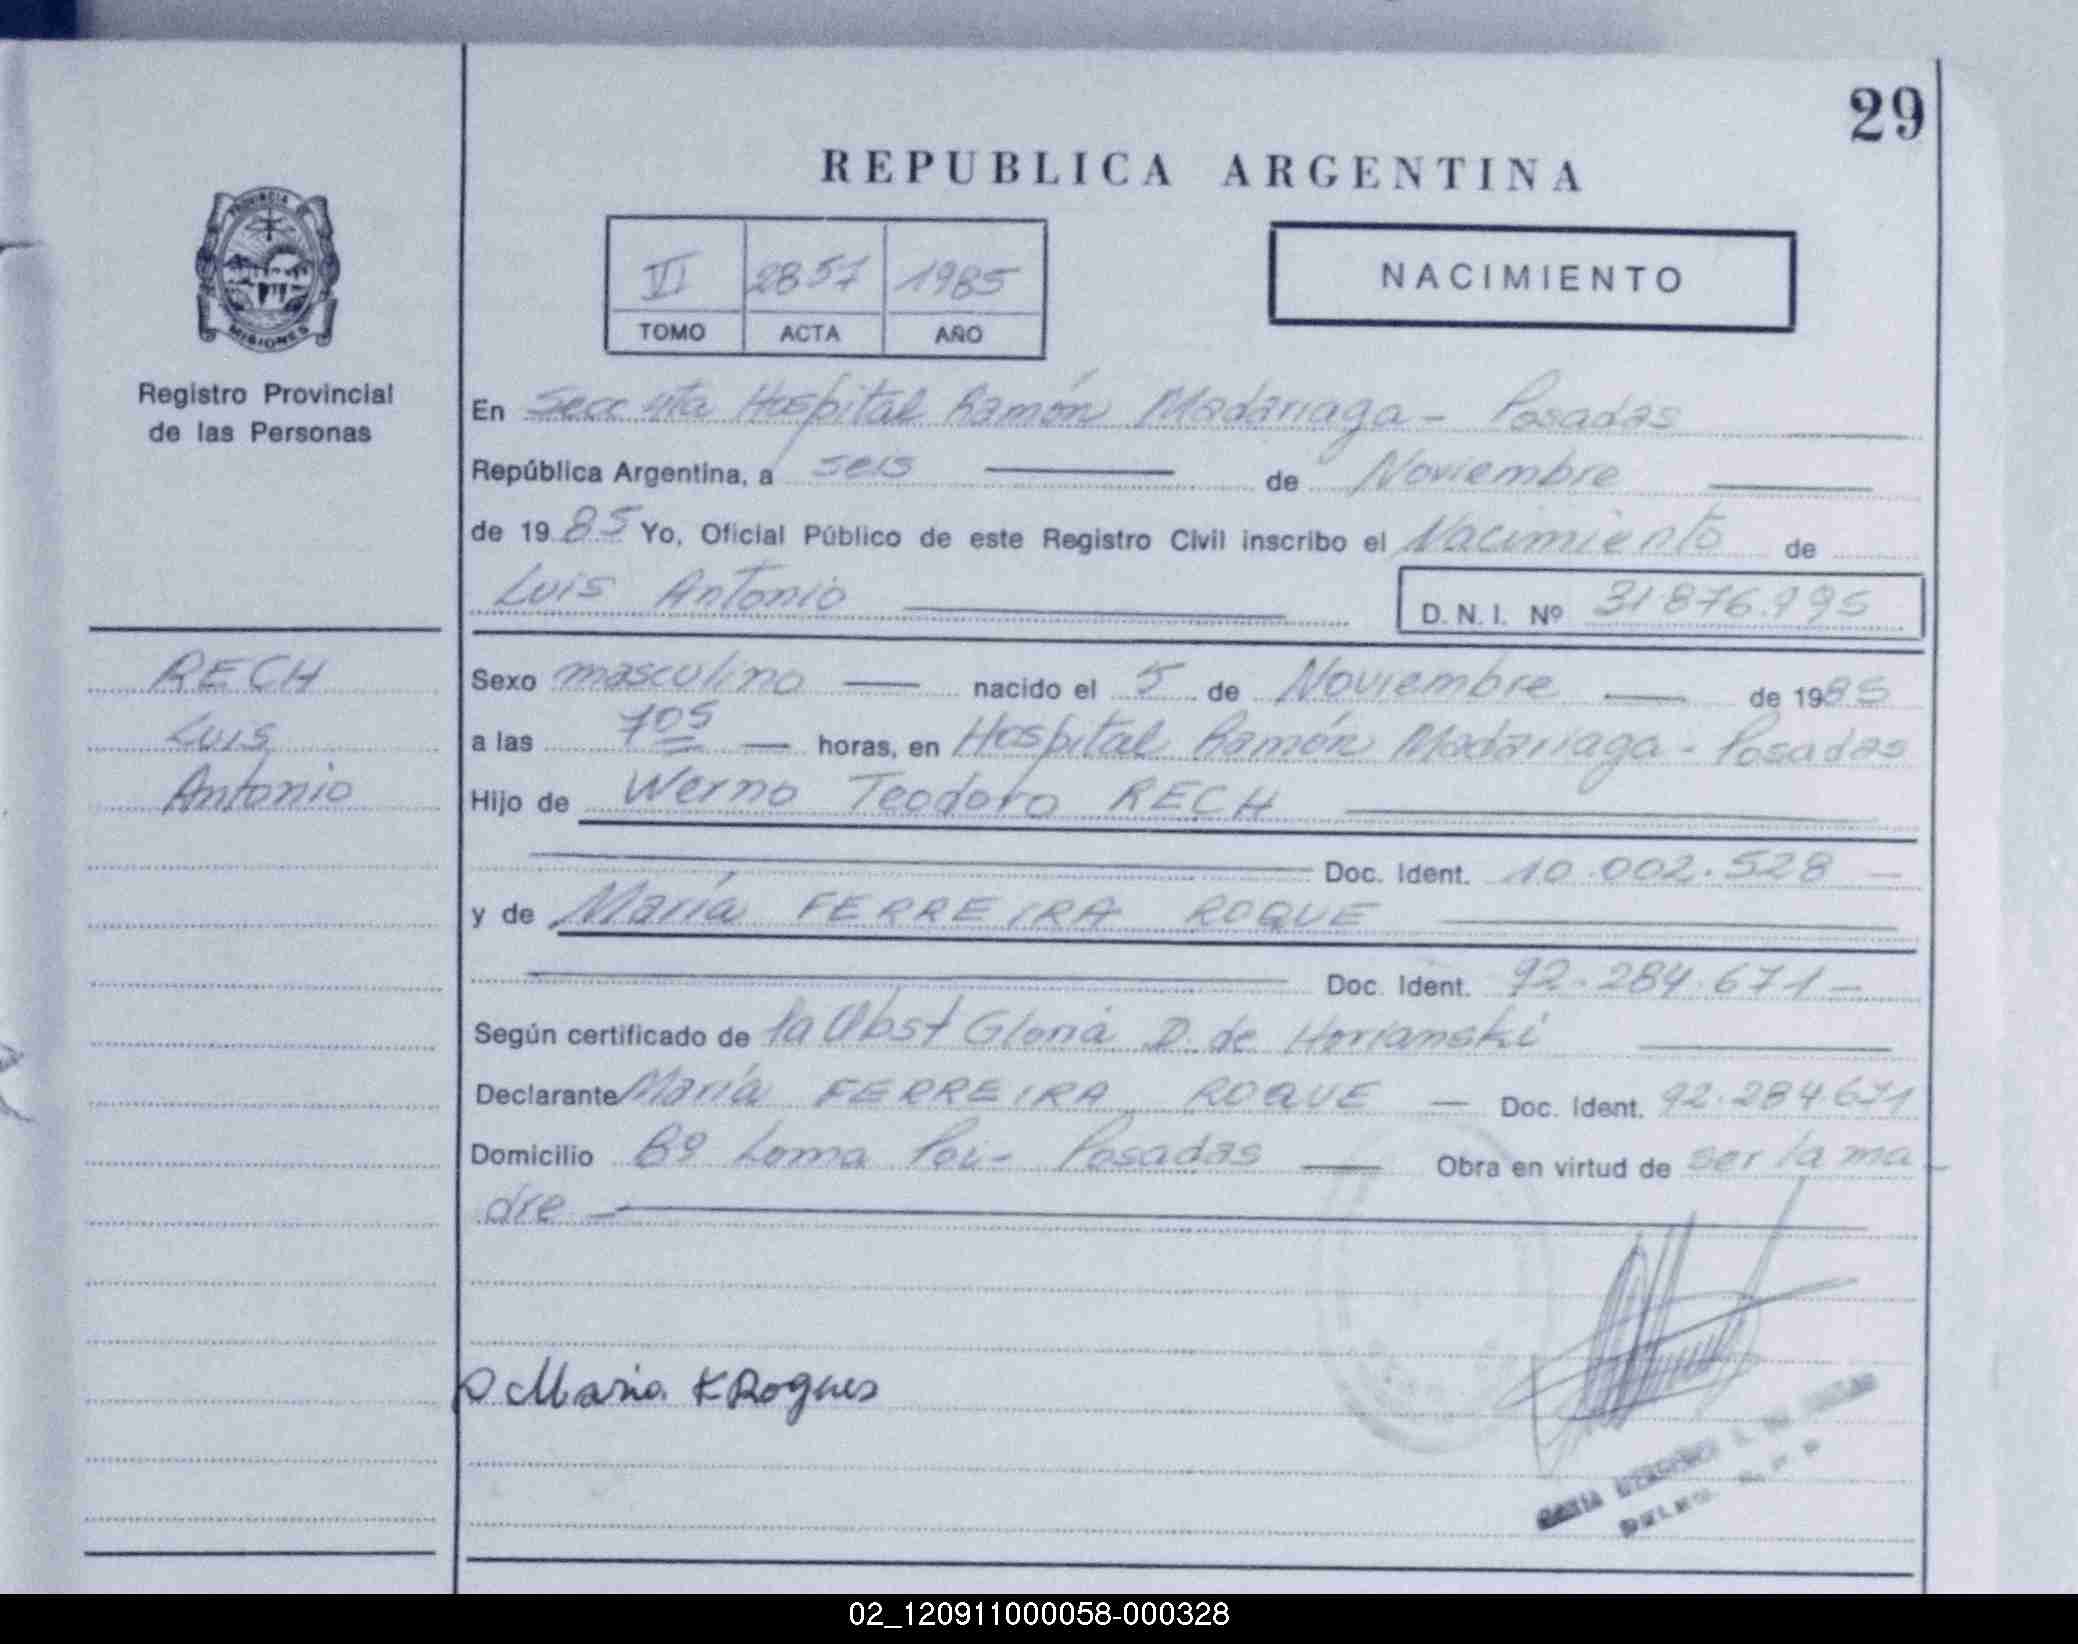 29
REPUBLICA ARGENTINA
PROVINCIA DE
MISIONES
VI 2857 1985
TOMO ACTA AÑO
NACIMIENTO
Registro Provincial
de las Personas
En Hospital Ramón Madariaga - Posadas
República Argentina, a seis de Noviembre
de 1985 Yo, Oficial Público de este Registro Civil inscribo el Nacimiento de
Luis Antonio
D. N. I. Nº 31.876.995
RECH
Luis
Antonio
Sexo masculino nacido el 5 de Noviembre de 1985
a las 705 horas, en Hospital Ramón Madariaga - Posadas
Hijo de Werno Teodoro RECH
Doc. Ident. 10.002.528
y de María FERREIRA ROQUE
Doc. Ident. 92.284.671
Según certificado de la Obst Gloria D. de Horianski
Declarante María FERREIRA ROQUE Doc. Ident. 92.284.671
Domicilio Bº Loma Poi - Posadas Obra en virtud de ser la ma
dre
Maria K Rogues
02_120911000058-000328